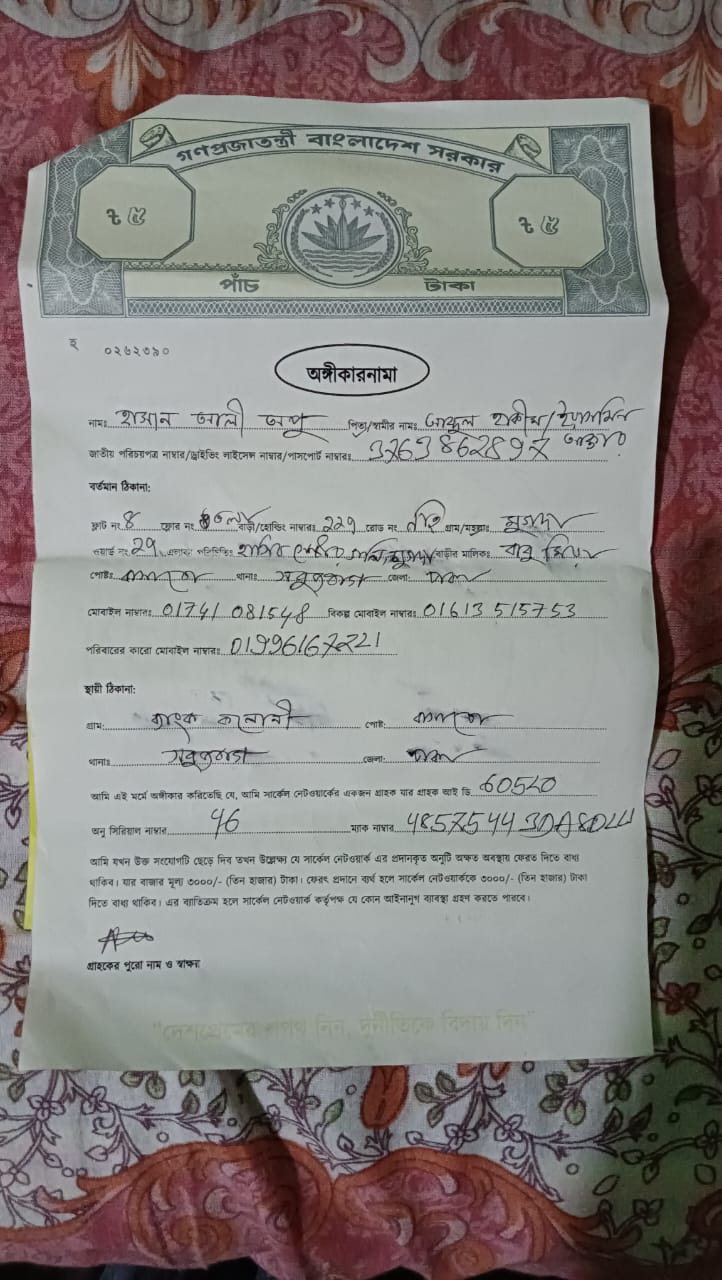 গণপ্রজাতন্ত্রী বাংলাদেশ সরকার
৳ ৫ ৳ ৫
পাঁচ টাকা
হ ০২৬২৩৯০
অঙ্গীকারনামা
নামঃ হাসান আলী অপু পিতা/স্বামীর নামঃ আব্দুল হাকীম/ইয়াসমিন আক্তার
জাতীয় পরিচয়পত্র নাম্বার/ড্রাইভিং লাইসেন্স নাম্বার/পাসপোর্ট নাম্বারঃ 3763862897
বর্তমান ঠিকানা:
ফ্লাট নং 8 ফ্লোর নং বাড়ী/হোল্ডিং নাম্বারঃ 229 রোড নং নাই গ্রাম/মহল্লাঃ মুগদা
ওয়ার্ড নং 29 এলাকা পরিচিতিঃ বাড়ীর মালিকঃ বাবু মিয়া
পোষ্টঃ থানাঃ সবুজবাগ জেলা: ঢাকা
মোবাইল নাম্বারঃ 01741 081548 বিকল্প মোবাইল নাম্বারঃ 01613 515753
পরিবারের কারো মোবাইল নাম্বারঃ 01996167221
স্থায়ী ঠিকানা:
গ্রাম: ব্যাংক কলোনী পোষ্ট:
থানাঃ সবুজবাগ জেলা: ঢাকা
আমি এই মর্মে অঙ্গীকার করিতেছি যে, আমি সার্কেল নেটওয়ার্কের একজন গ্রাহক যার গ্রাহক আই ডি 60520
অনু সিরিয়াল নাম্বার 46 ম্যাক নাম্বার
আমি যখন উক্ত সংযোগটি ছেড়ে দিব তখন উল্লেক্ষ্য যে সার্কেল নেটওয়ার্ক এর প্রদানকৃত অনুটি অক্ষত অবস্থায় ফেরত দিতে বাধ্য
থাকিব। যার বাজার মূল্য ৩০০০/- (তিন হাজার) টাকা। ফেরৎ প্রদানে ব্যর্থ হলে সার্কেল নেটওয়ার্ককে ৩০০০/- (তিন হাজার) টাকা
দিতে বাধ্য থাকিব। এর ব্যতিক্রম হলে সার্কেল নেটওয়ার্ক কর্তৃপক্ষ যে কোন আইনানুগ ব্যবস্থা গ্রহণ করতে পারবে।
গ্রাহকের পুরো নাম ও স্বাক্ষর
"দেশপ্রেমের শপথ নিন, দুর্নীতিকে বিদায় দিন"